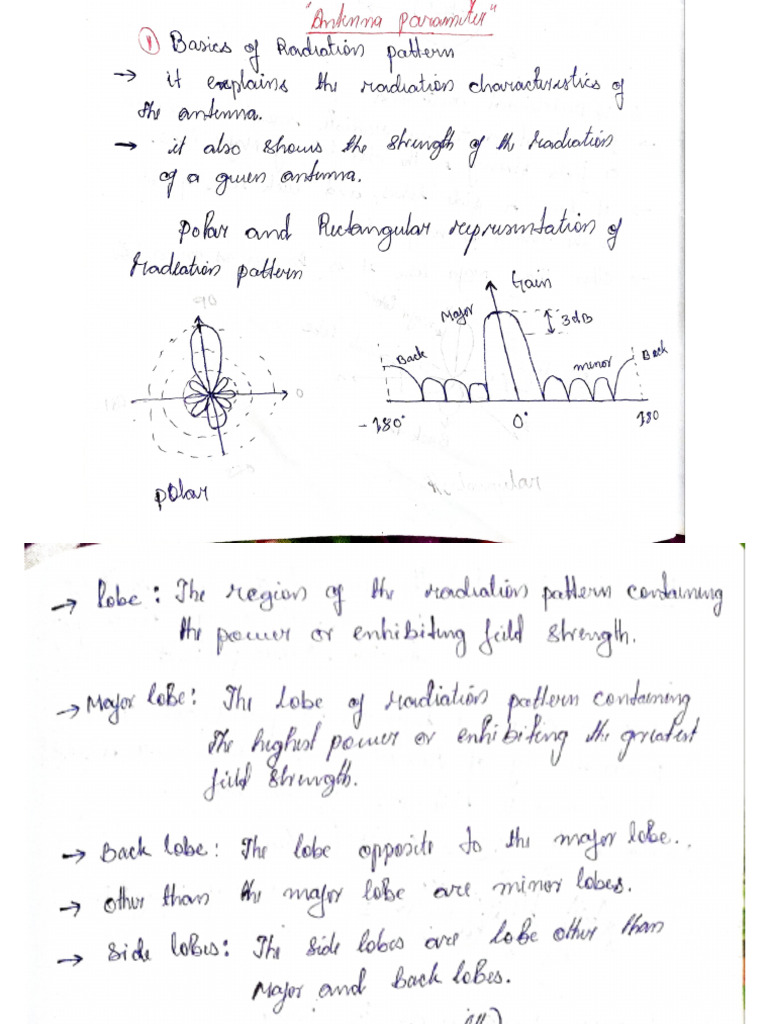 "Antenna parameter"
1 Basics of Radiation pattern
→ it explains the radiation characteristics of
the antenna.
→ it also shows the strength of the radiation
of a given antenna.
Polar and Rectangular representation of
Radiation pattern
90
0
polar
Gain
Major
3dB
Back
minor
Back
-180°
0°
180
→ Lobe: The region of the radiation pattern containing
the power or enhibiting field strength.
→ Major lobe: The lobe of radiation pattern containing
the highest power or enhibiting the greatest
field strength.
→ Back lobe: The lobe opposite to the major lobe..
→ other than the major lobe are minor lobes.
→ Side lobes: The side lobes are lobe other than
Major and back lobes.